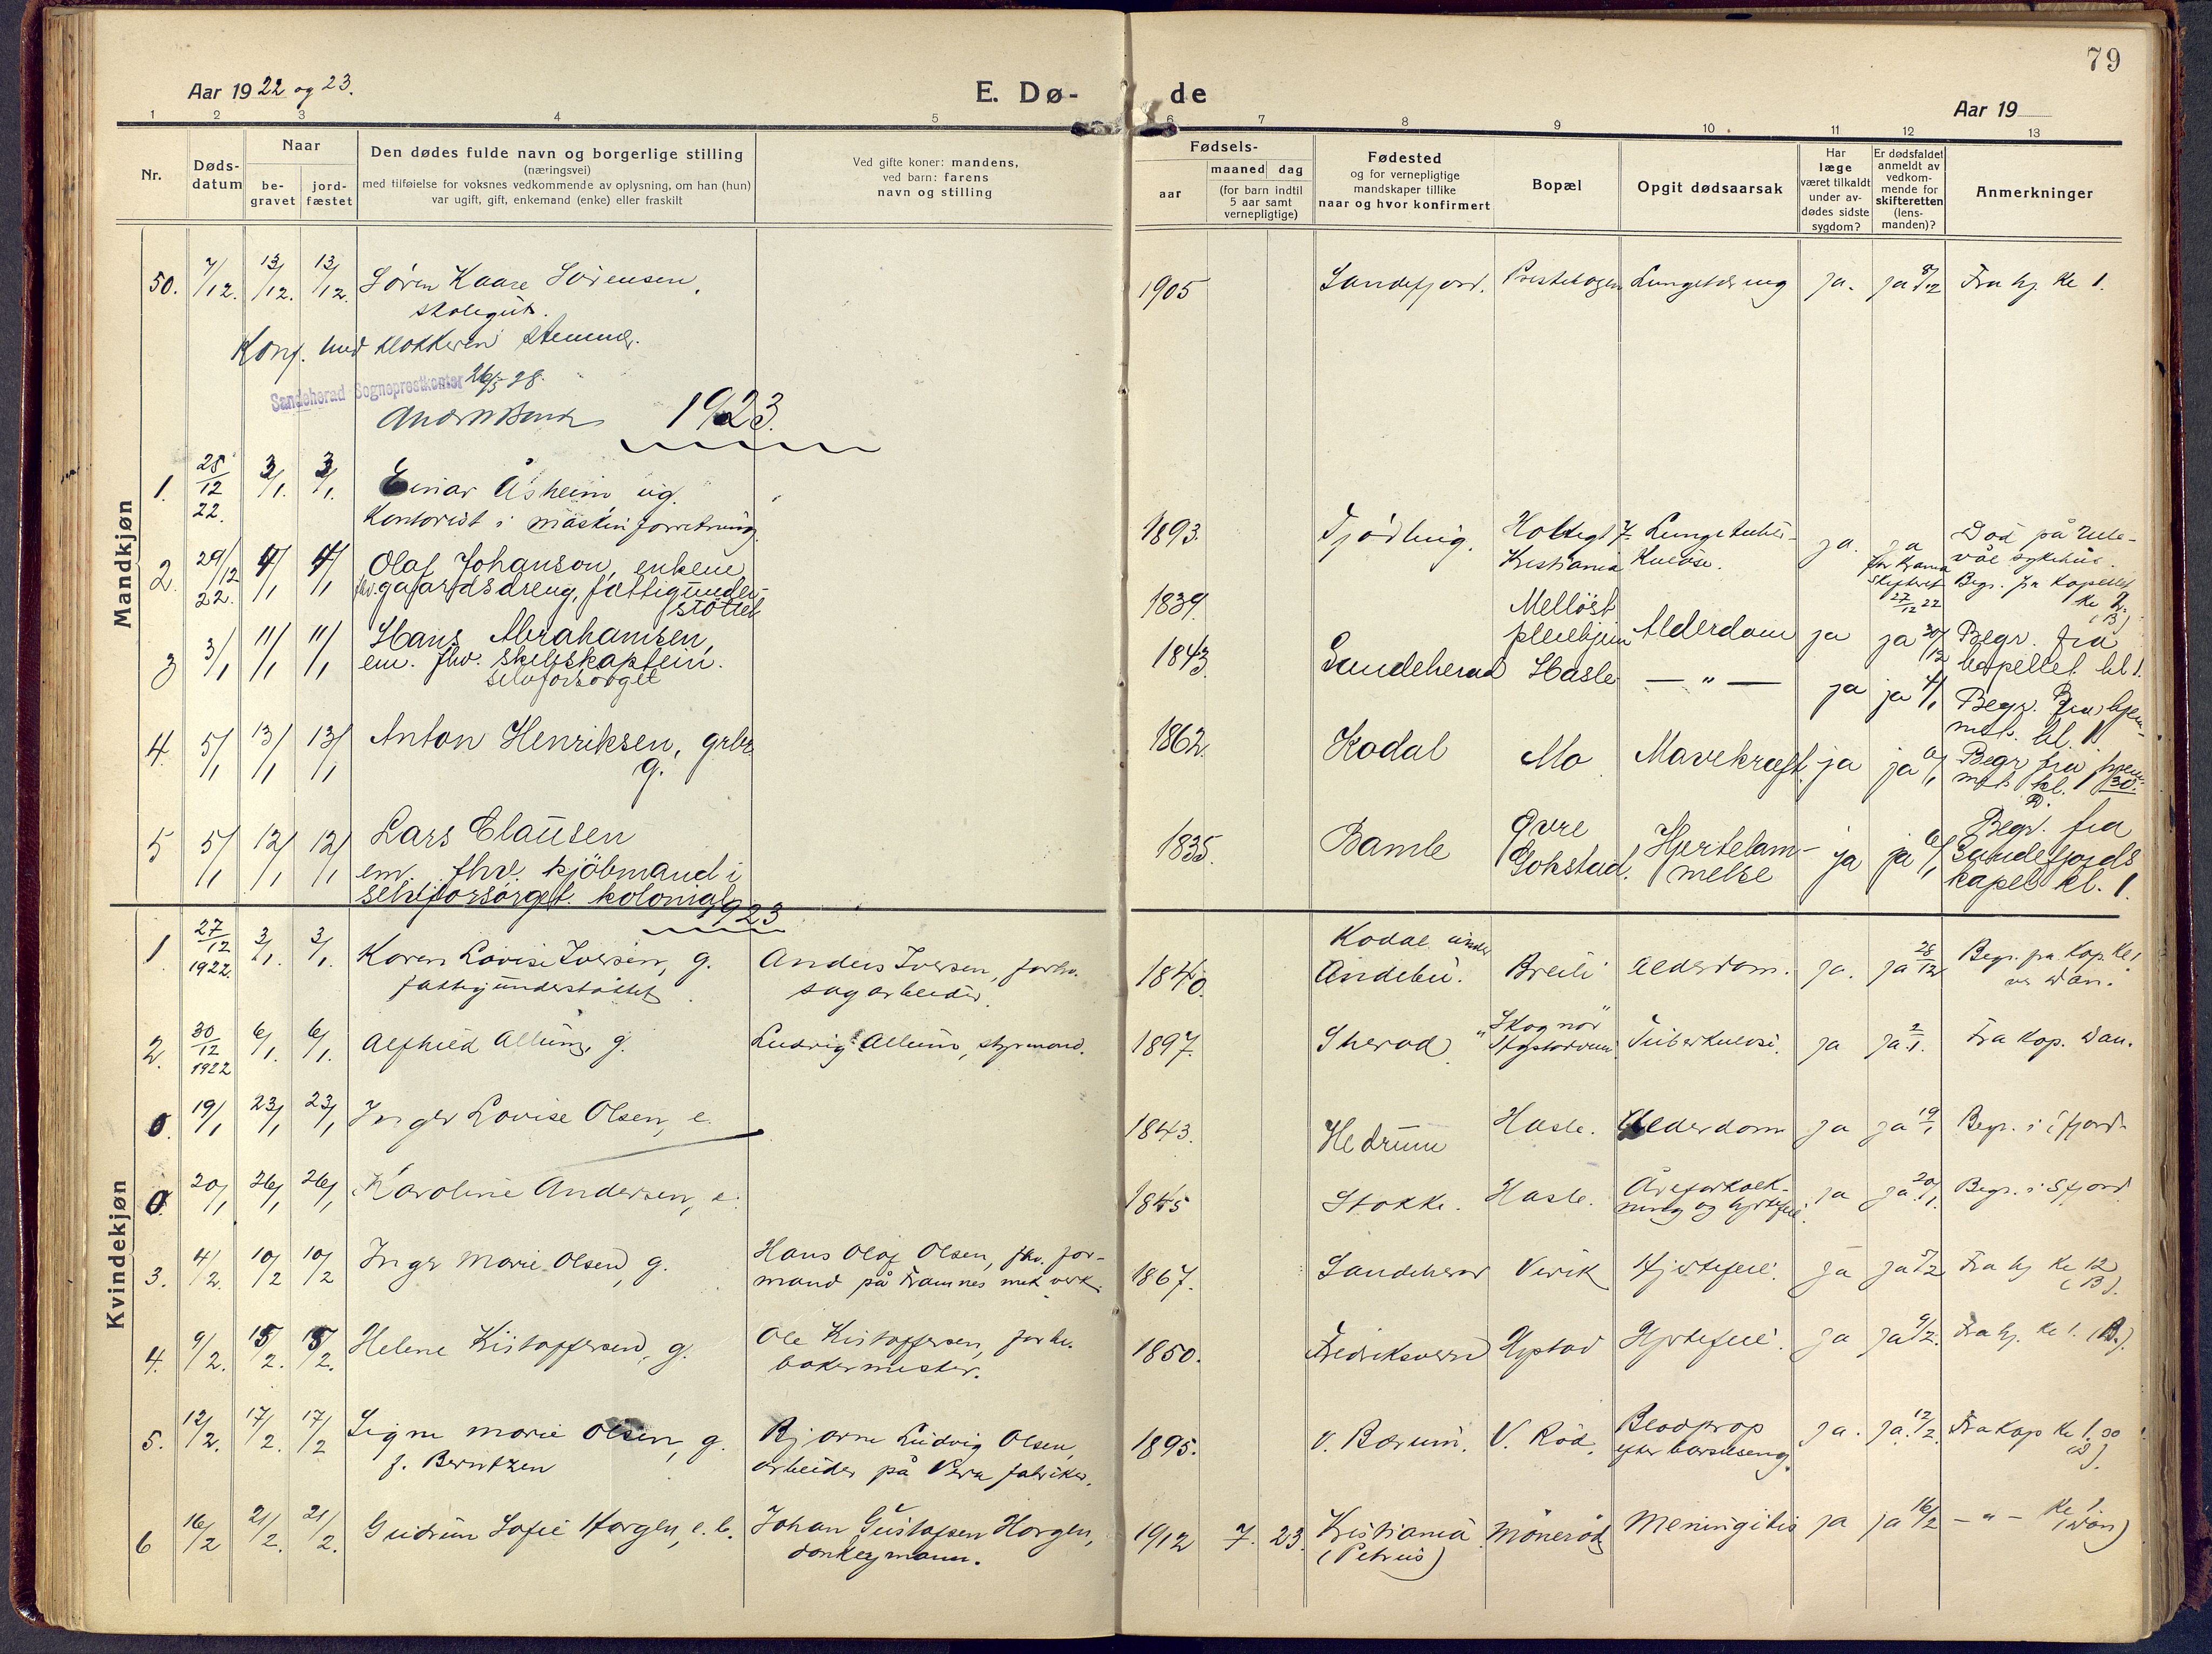 79
Aar 1922 og 23.
E. Dø-
de
Aar 19
1 2 3 4 5 6 7 8 9 10 11 12 13
Nr.
Døds-
datum
Naar
be-
gravet
jord-
fæstet
Den dødes fulde navn og borgerlige stilling
(næringsvei)
med tilføielse for voksnes vedkommende av oplysning, om han (hun)
var ugift, gift, enkemand (enke) eller fraskilt
Ved gifte koner: mandens,
ved barn: farens
navn og stilling
Fødsels-
aar
maaned dag
(for barn indtil
5 aar samt
vernepligtige)
Fødested
og for vernepligtige
mandskaper tillike
naar og hvor konfirmert
Bopæl
Opgit dødsaarsak
Har
læge
været tilkaldt
under av-
dødes sidste
sygdom?
Er dødsfaldet
anmeldt av
vedkom-
mende for
skifteretten
(lens-
manden)?
Anmerkninger
Mandkjøn
50. 7/12. 13/12. 13/12. Søren Kaare Sørensen, 1905 Sandefjord. Prestehagen ja. ja 8/12 Fra hj. kl 1.
skolegut.
Konf. med klokkeren stemmer.
Sandeherad Sogneprestkontor 26/5 28.
1923.
1. 25/12 22. 3/1. 3/1. Einar Åsheim ug. 1893. Tjødling. Holtegt 7. Lungetuber- ja. ja Død på Ulle-
Kontorist i maskinforretning Kristiania kulose. for Krania vål sykehus.
skifteret Begr. fra kapellet
27/12 22
2. 29/12 22. 4/1 4/1 Olaf Johanson, enkem 1839. Melløst Alderdom ja ja 30/12 Begr. fra
fhv. gaardsdreng, fattigunder- pleiehjem kapellet kl 1.
støttet
3 3/1 11/1 11/1 Hans Abrahamsen, 1843. Sandeherad Hasle — " — ja ja 4/1 Begr. fra hjem-
em. fhv. skibskaptein. met. kl. 1
selvforsørget
4. 5/1 13/1 13/1 Anton Henriksen, grbr. 1862. Kodal Mo Mavekræft ja ja 6/1 Begr fra hjem-
g. met kl. 1 30.
5 5/1 12/1 12/1 Lars Clausen 1835. Bamle Øvre Hjertelam- ja ja 6/1 Begr. fra
em. fhv. kjøbmand i Gokstad. melse Sandefjords
selvforsørget. kolonial kapel kl. 1.
1923
Kvindekjøn
1 27/12 1922. 3/1. 3/1. Karen Lovise Iversen, g. Anders Iversen, forhv. 1840. Kodal under Andebu. Breili Alderdom. ja. ja 28/12 Begr. fra Kap. kl 1
fattigunderstøttet sagarbeider. ved Dan.
2. 30/12 1922 6/1. 6/1. Alfhild Allum, g. Ludvig Allum, styrmand. 1897. Sherad "Skognør" Tuberkulose. ja ja 2/1. Fra Kap. Dan.
0. 19/1 23/1 23/1 Inger Lovise Olsen, e. 1843. Hedrum Hasle. Alderdom ja ja 19/1 Begr. i Sfjord.
0. 20/1 26/1 26/1 Karoline Andersen, e. 1845 Stokke. Hasle. Åreforkalk- ja ja 20/1. Begr. i Sfjord
ning og hjertefeil.
3. 4/2. 10/2 10/2 Inger Marie Olsen, g. Hans Olaf Olsen, fhv. for- 1867. Sandeherad Virik Hjertefeil. ja ja 5/2 Fra hj kl 12
mand på Framnes mek verk. (B).
4. 9/2. 15/2. 15/2. Helene Kristoffersen, g. Ole Kristoffersen, forhv. 1850. Fredriksvern Hystad Hjertefeil. ja ja 9/2. Fra hj. kl 1. (B.)
bakermester.
5. 12/2. 17/2. 17/2 Signe Marie Olsen, g. Bjarne Ludvig Olsen, 1895. V. Bærum. V. Rød. Blodprop ja. ja. 12/2. Fra Kap kl 1.00
f. Berntzen arbeider på Vera fabriker. efter barselseng.
6 16/2 21/2. 21/2. Gudrun Sofie Horgen, e. b. Johan Gustafsen Horgen, 1912 7. 23. Kristiania Mønerød Meningitis ja ja 16/2 — " — kl 1
donkeymann. (Petrus) (Dan)